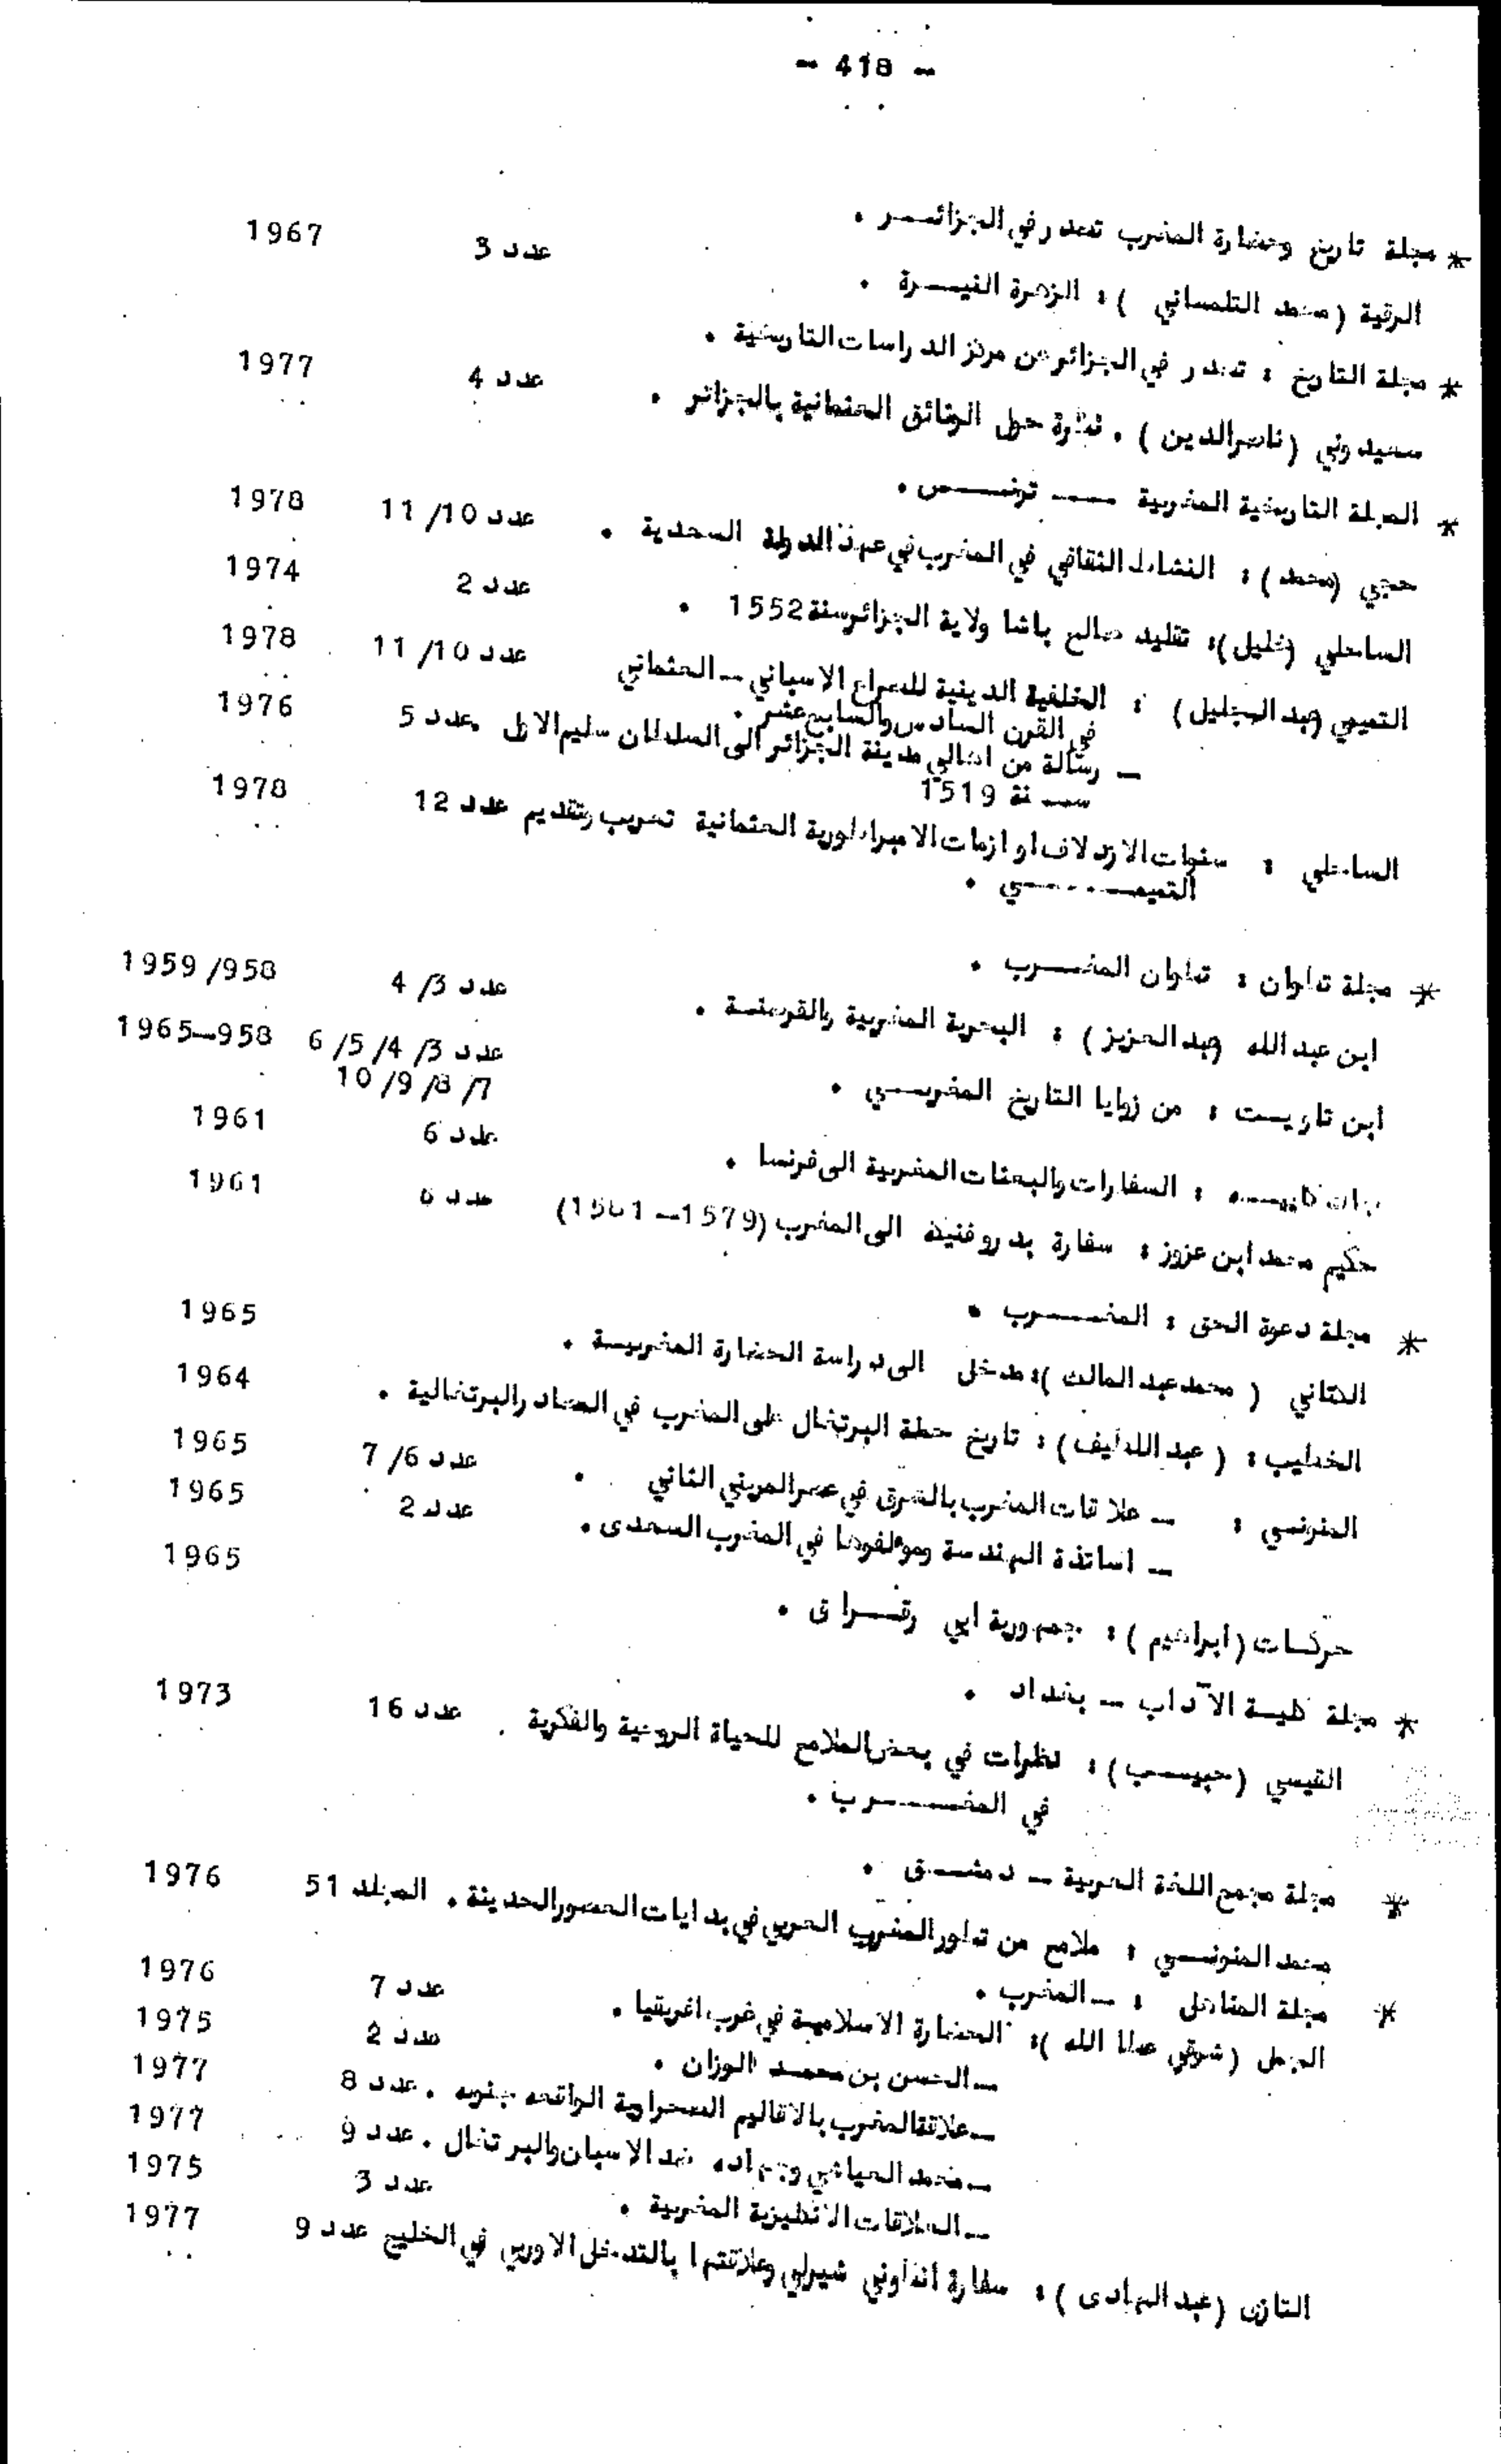 - 418 -
* مجلة تاريخ وحضارة المغرب تصدر في الجزائــر . عدد 3 1967
الرقية (محمد التلمساني ) : الزهرة النيــرة .
* مجلة التاريخ : تصدر في الجزائر عن مركز الدراسات التاريخية . عدد 4 1977
سعيدوني (ناصرالدين ) . نظرة حول الوثائق العثمانية بالجزائر .
* المجلة التاريخية المغربية ـــ تونــس .
حجي (محمد) : النشاط الثقافي في المغرب في عهد الدولة السعدية . عدد 11/10 1978
الساحلي (خليل): تقليد صالح باشا ولاية الجزائر سنة 1552 . عدد 2 1974
التميمي (عبد الجليل) : الخلفية الدينية للصراع الاسباني ـ العثماني عدد 11/10 1978
في القرن السادس والسابع عشر .
ـ رسالة من اهالي مدينة الجزائر الى السلطان سليم الاول عدد 5 1976
ســنة 1519
الساحلي : سنوات الازدلاف او ازمات الامبراطورية العثمانية تعريب وتقديم عدد 12 1978
التميمــي .
* مجلة تطوان : تطوان المغــرب .
ابن عبد الله (عبد العزيز ) : البحرية المغربية والقرصنـة . عدد 4/3 1959/958
ابن تاويـت : من زوايا التاريخ المغربــي . عدد 6/5/4/3 1965-958
10/9/8/7
: السفارات والبعثات المغربية الى فرنسا . عدد 6 1961
حكيم محمد ابن عزوز : سفارة بدرو فنيـ الى المغرب (1579-1581) عدد 6 1961
* مجلة دعوة الحق : المغــرب .
الكتاني ( محمد عبد المالك ): مدخل الى دراسة الحضارة المغربيـة . 1965
الخطيب : ( عبد اللطيف) : تاريخ حطة البرتغال على المغرب في المصادر البرتغالية . 1964
المنونسي : ـ علاقات المغرب بالشرق في عصر المريني الثاني . عدد 7/6 1965
ـ اساتذة الهندسة ومؤلفوها في المغرب السعدى . عدد 2 1965
حركـات (ابراهيم ) : جمهورية ابي رقــراق . 1965
* مجلة كليـة الآداب ـ بغداد .
القيسي (حبيـب) : نظرات في بعض الملامح للحياة الروحية والفكرية . عدد 16 1973
في المغــرب .
* مجلة مجمع اللغة العربية ـ دمشــق .
محمد المنونـي : ملامح من تطور المغرب العربي في بدايات العصور الحديثة . المجلد 51 1976
* مجلة المناهل : ـ المغرب .
الجمل (شوقي عطا الله ): الحضارة الاسلامية في غرب افريقيا . عدد 7 1976
ـ الحسن بن محمـد الوزان . عدد 2 1975
ـ علاقة المغرب بالاقاليم الصحراوية الواقعه جنوبه . عدد 8 1977
ـ محمد العياشي وجهاده ضد الاسبان والبرتغال . عدد 9 1977
ـ العلاقات الانكليزية المغربية . عدد 3 1975
التازي (عبد الهادى ) : سفارة انطوني شيرلي وعلاقتها بالتدخل الاوربي في الخليج عدد 9 1977